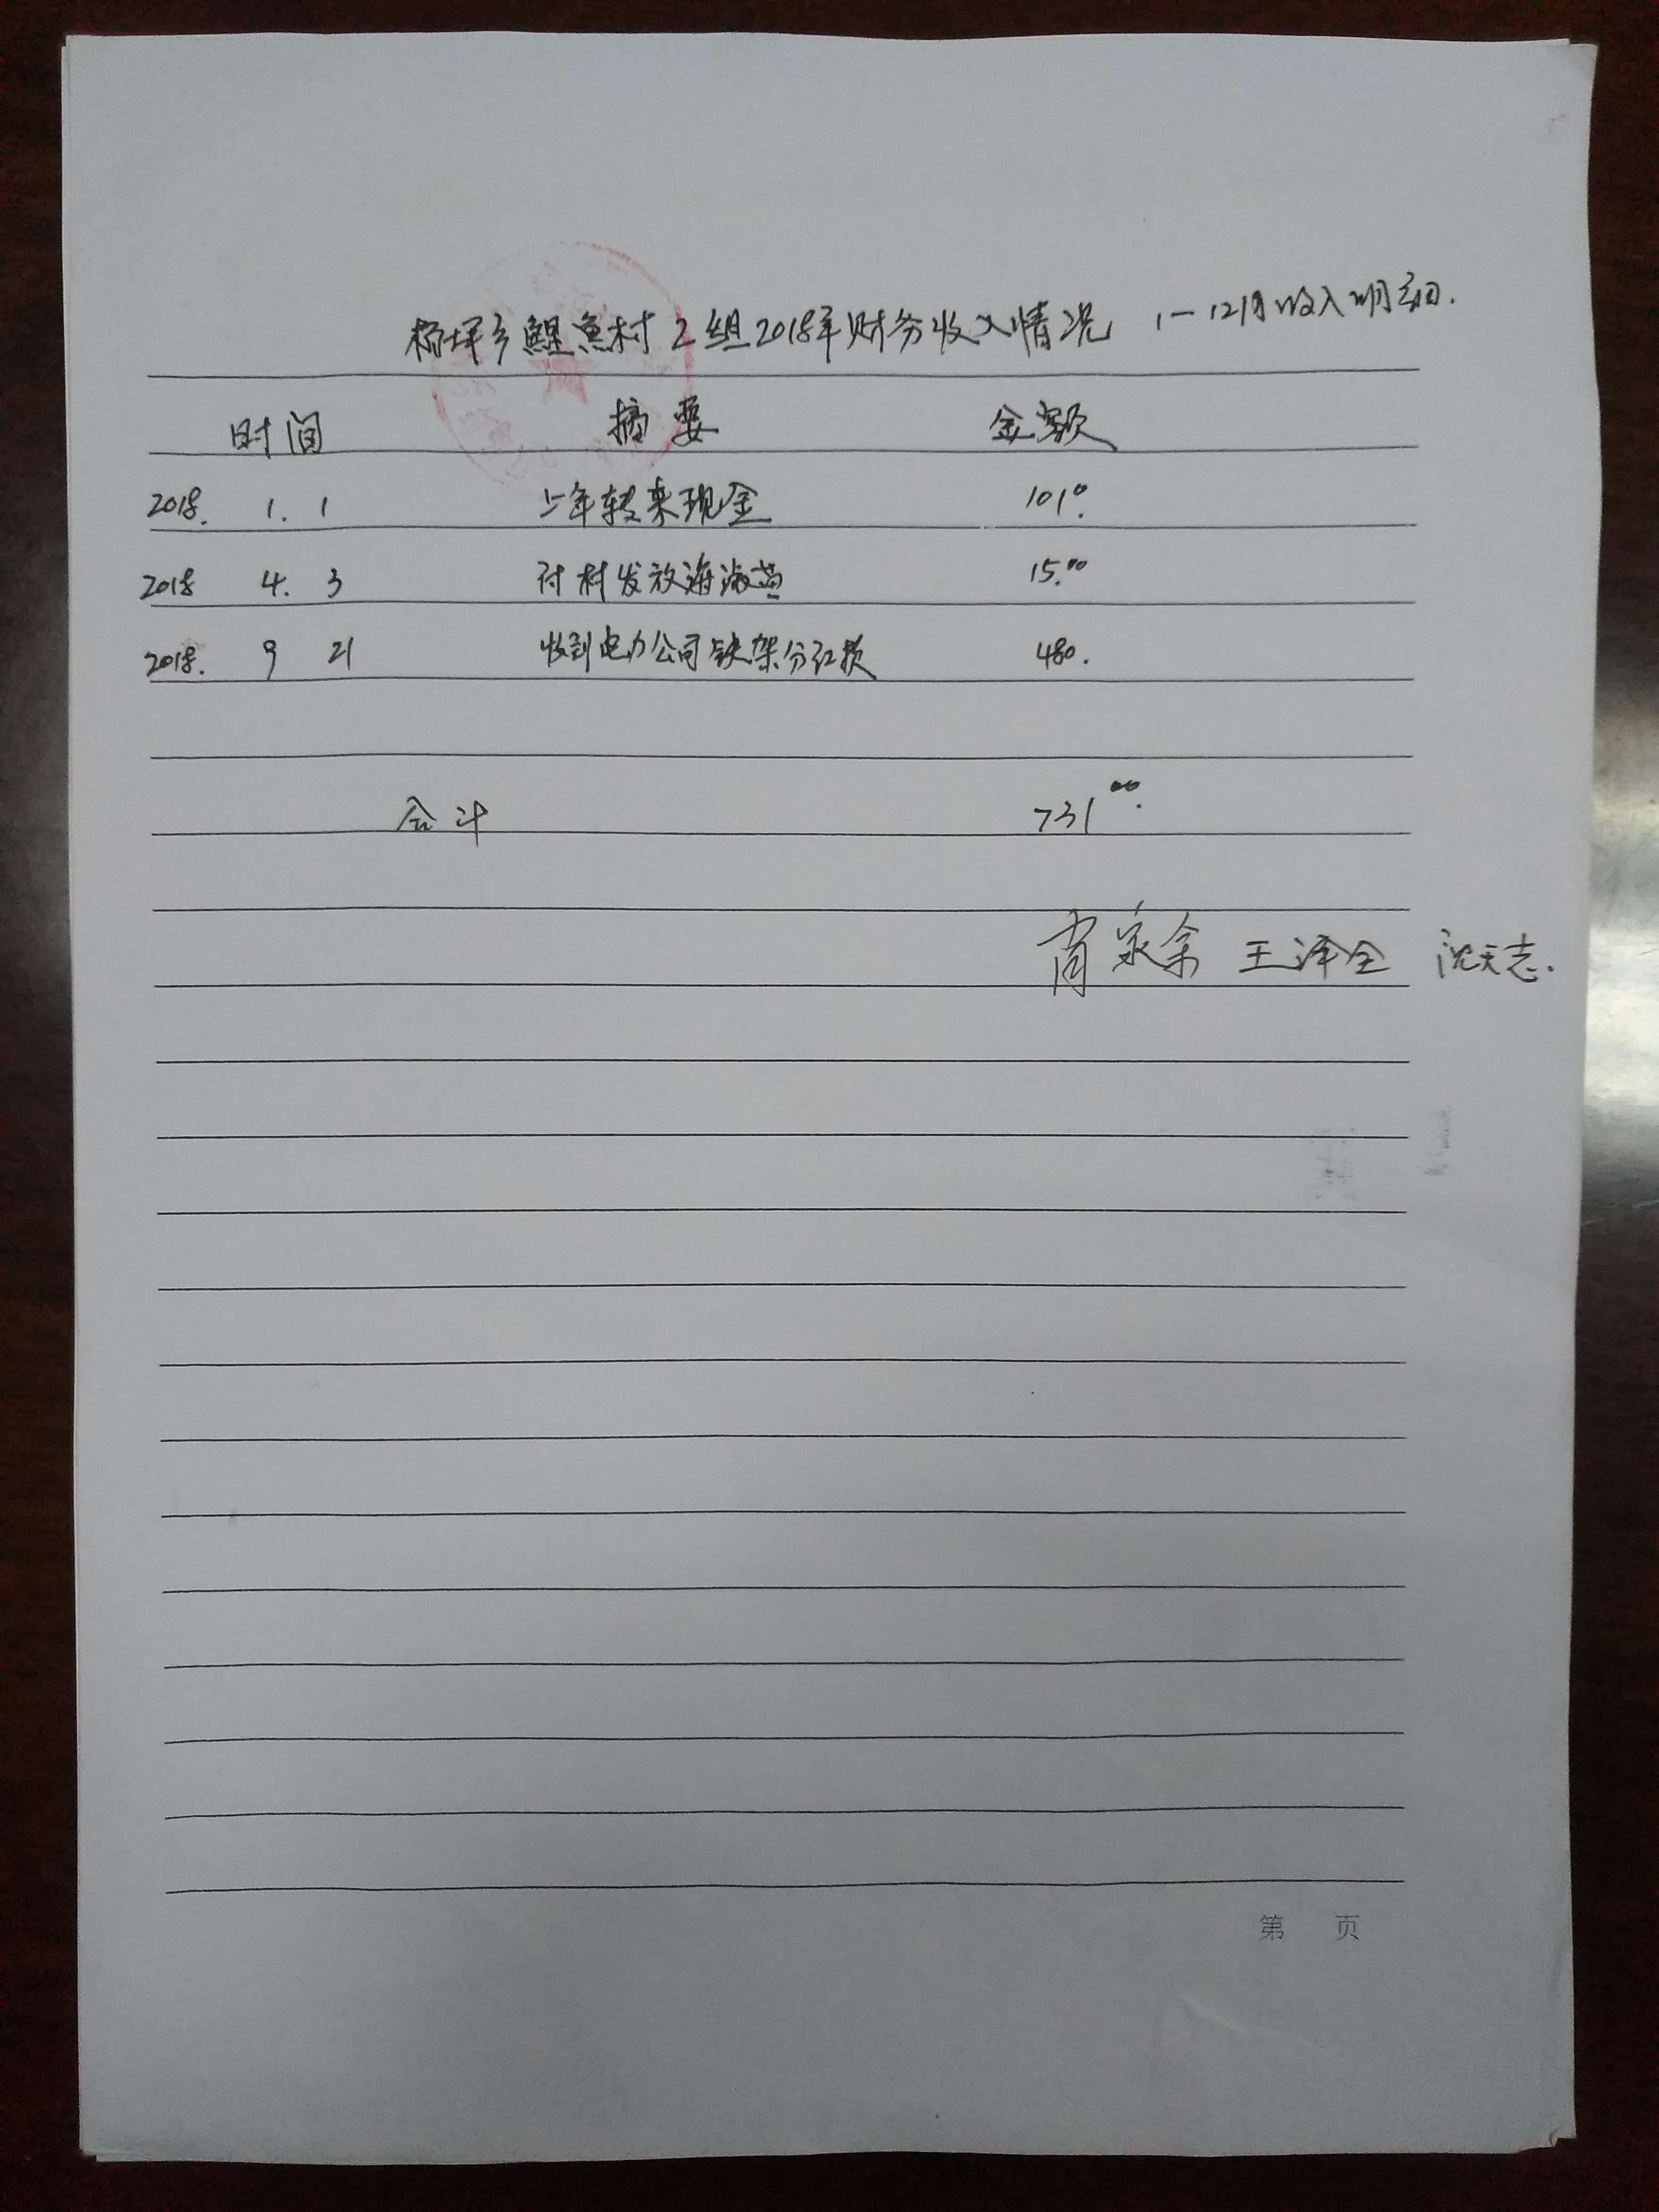 杨坪乡鲤鱼村2组2018年财务收入情况 1-12月收入明细.
时间 摘要 金额
2018. 1. 1 上年转来现金 101⁰.
2018 4. 3 付村发放海椒苗 15.⁰⁰
2018. 9 21 收到电力公司铁架分红款 480.
合计 731⁰⁰.
肖家余 王泽全 沈天志.
第 页